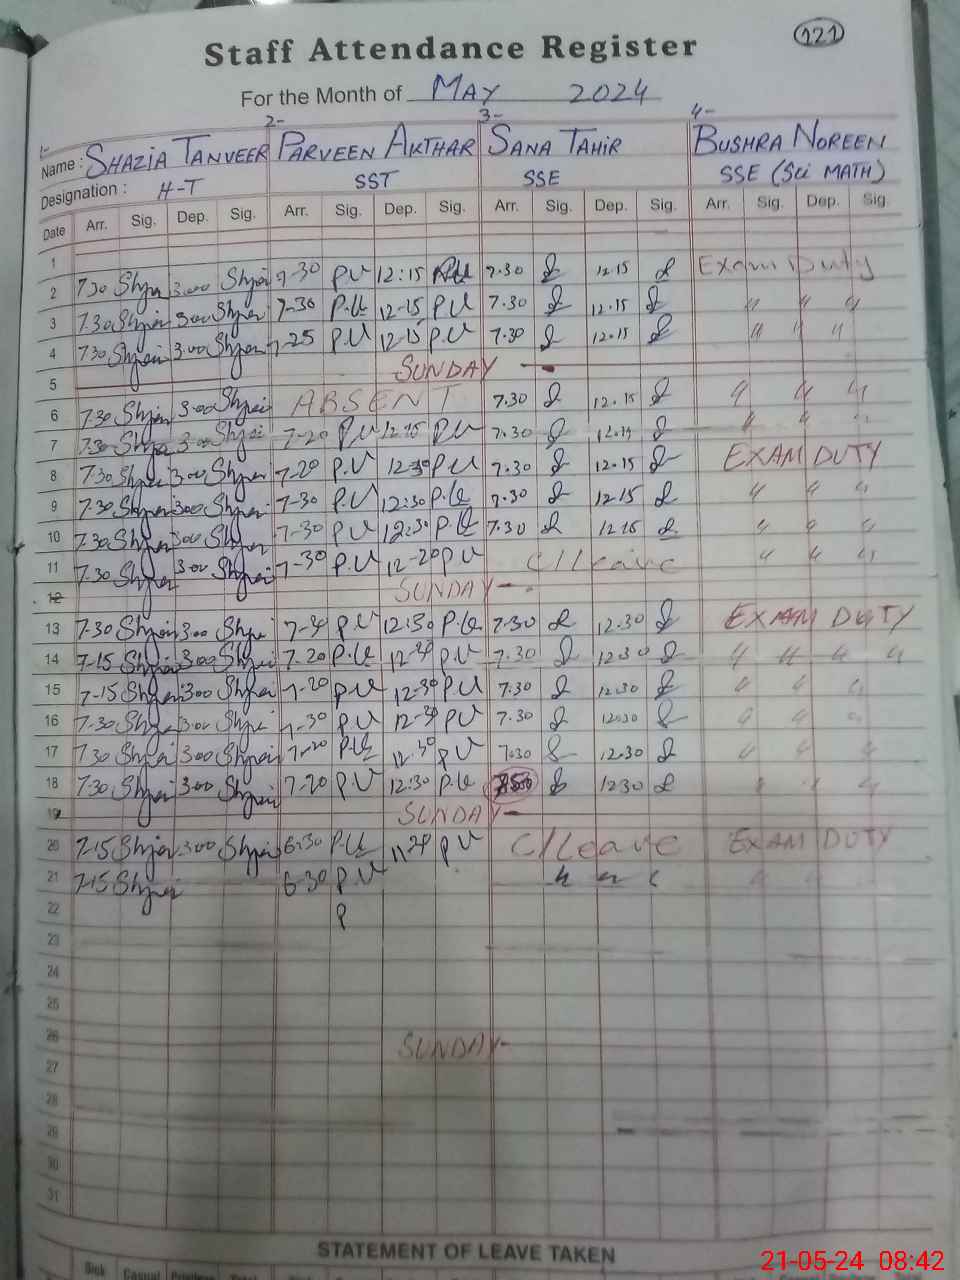 121
Staff Attendance Register
For the Month of MAY 2024
1- 2- 3- 4-
Name : SHAZIA TANVEER PARVEEN AKTHAR SANA TAHIR BUSHRA NOREEN
Designation : H-T SST SSE SSE (Sci MATH)
Date Arr. Sig. Dep. Sig. Arr. Sig. Dep. Sig. Arr. Sig. Dep. Sig. Arr. Sig. Dep. Sig.
1
2 7.30 3.00 7-30 P.U 12:15 P.U 7.30 12.15 Exam Duty
3 7.30 3.00 7-30 P.U 12-15 P.U 7.30 12.15 " " "
4 7.30 3.00 7-25 P.U 12-15 P.U 7.30 12.15 " " "
5 SUNDAY -
6 7.30 3.00 ABSENT 7.30 12.15 " " "
7 7.30 3.00 7-20 P.U 12.15 P.U 7.30 " " "
8 7.30 3.00 7-20 P.U 12-30 P.U 7.30 12.15 EXAM DUTY
9 7.30 3.00 7-30 P.U 12:30 P.U 7.30 12.15 " " "
10 7.30 3.00 7-30 P.U 12:30 P.U 7.30 12.15 " " "
11 7.30 3.00 7-30 P.U 12-20 P.U C/Leave " " "
12 SUNDAY -
13 7-30 3.00 P.U 12:30 P.U 7.30 12.30 EXAM DUTY
14 7-15 3.00 7-20 P.U 12-30 P.U 7.30 12.30 " " " "
15 7-15 3.00 7-20 P.U 12-30 P.U 7.30 12.30 " " "
16 7-30 3.00 7-30 P.U 12-30 P.U 7.30 12.30 " " "
17 7.30 3.00 7-20 P.U 12-30 P.U 7.30 12.30 " " "
18 7-30 3.00 7-20 P.U 12:30 P.U 12.30 " " "
19 SUNDAY -
20 7-15 3.00 6-30 P.U 11-20 P.U C/Leave EXAM DUTY
21 7-15 6-30 P.U " " " " "
22 P
23
24
25
26 SUNDAY -
27
28
29
30
31
STATEMENT OF LEAVE TAKEN
Sick Casual
21-05-24 08:42